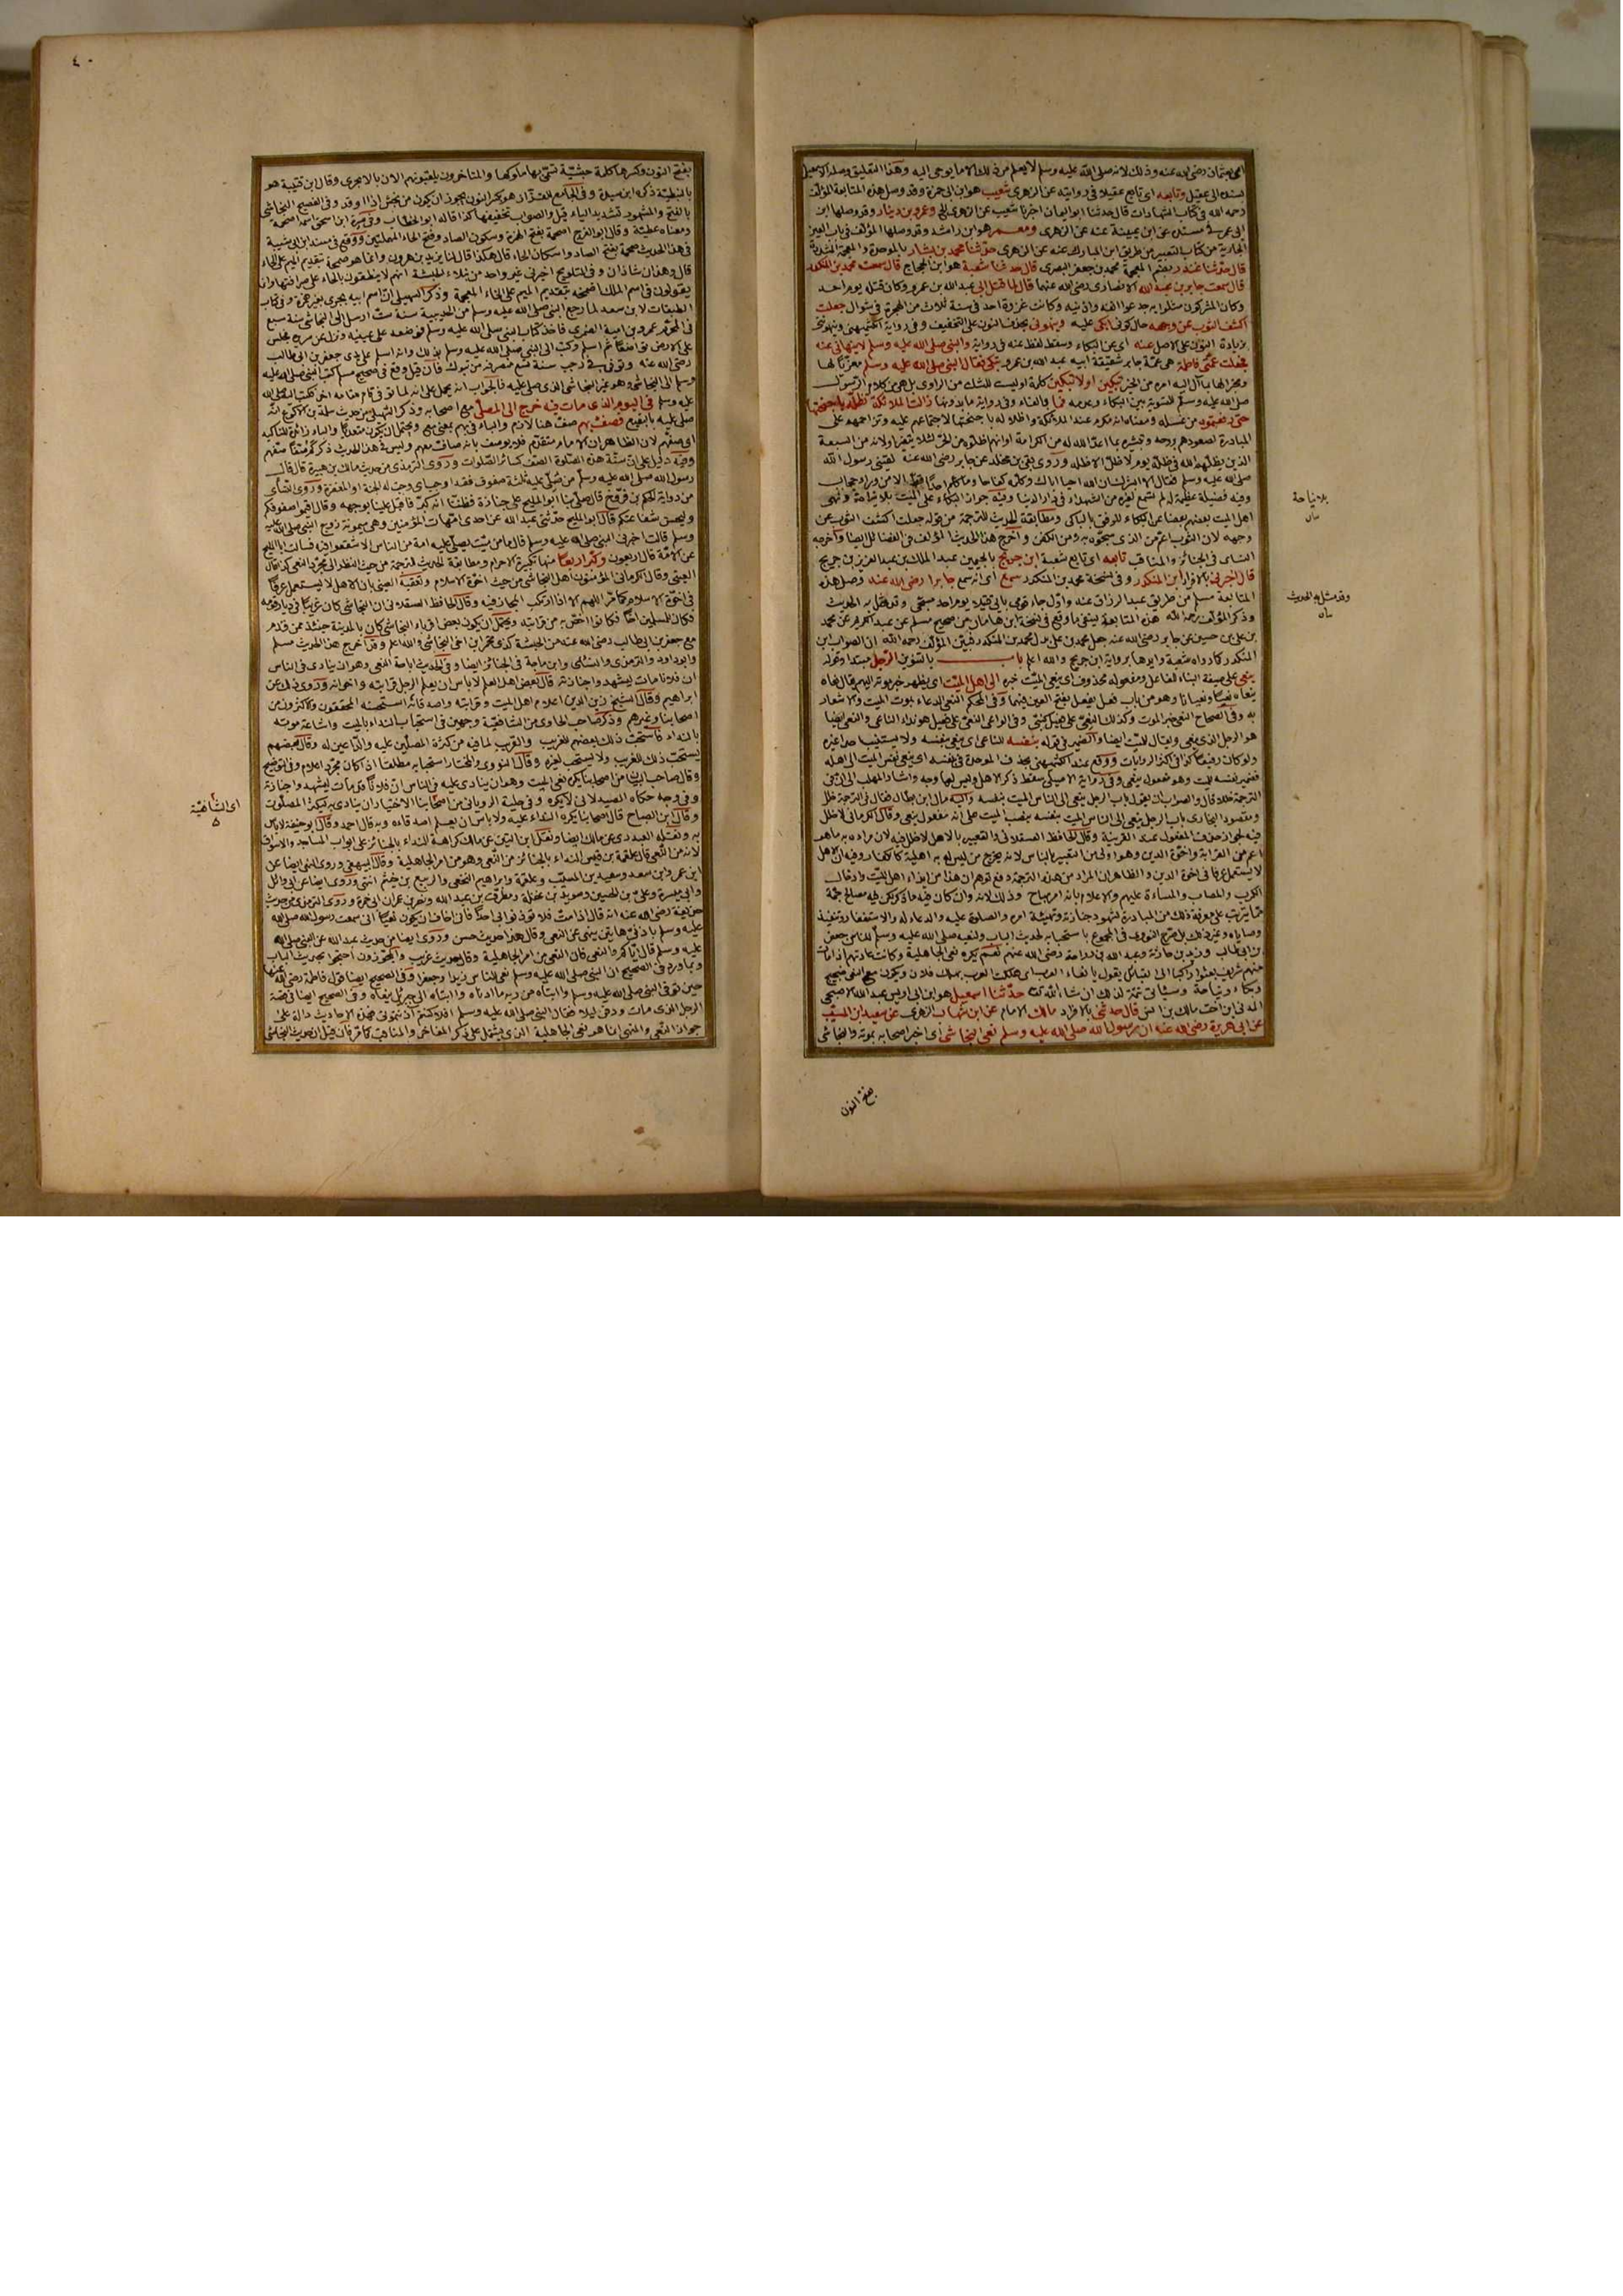 بعثمان رضى الله عنه وذلك لانه صلى الله عليه وسلم لا يعلم من ذلك الا ما يوحى اليه وهذا التعليق وصله الاسمعيل
وتابعه اى تابع عقيلا فى روايته عن الزهرى شعيب هو ابن ابى حمزة وقد وصل هذه المتابعة المؤلف
رحمه الله فى كتاب الشهادات قال حدثنا ابو اليمان اخبرنا شعيب عن الزهرى وعمرو بن دينار وقد وصلها ابن
ابى عمر فى مسنده عن ابن عيينة عنه عن الزهرى ومعمر هو ابن راشد وقد وصلها المؤلف فى باب العين
الجارية من كتاب التعبير من طريق ابن المبارك عنه عن الزهرى حدثنا محمد بن بشار بالموحدة والمعجمة المشددة
قال حدثنا غندر بضم المعجمة محمد بن جعفر البصرى قال حدثنا شعبة هو ابن الحجاج قال سمعت محمد بن المنكدر
قال سمعت جابر بن عبد الله الانصارى رضى الله عنهما قال لما قتل ابى عبد الله بن عمرو وكان قتله يوم احد
وكان المشركون مثلوا به جدعوا انفه واذنيه وكانت غزوة احد فى سنة ثلاث من الهجرة فى شوال جعلت
اكشف الثوب عن وجهه حال كونى ابكى عليه وينهونى بحذف النون على التخفيف وفى رواية الكشميهنى وينهوننى
بزيادة النون على الاصل عنه اى عن البكاء وسقط لفظ عنه فى رواية والنبى صلى الله عليه وسلم لا ينهانى عنه
فجعلت عمتى فاطمة هى عمة جابر شقيقة ابيه عبد الله بن عمرو تبكى فقال النبى صلى الله عليه وسلم معزيا لها
ومخبرا لها بما آل اليه امره من الخير تبكين او لا تبكين كلمة او ليست للشك من الراوى بل هى من كلام الرسول
صلى الله عليه وسلم للتسوية بين البكاء وعدمه فما بالفاء وفى رواية ما بدونها زالت الملائكة تظله باجنحتها
حتى رفعتموه من غسله ومعناه انه مكرم عند الملائكة واظلاله باجنحتها لاجتماعهم عليه وتزاحمهم على
المبادرة لصعودهم بروحه وتبشيره بما اعد الله له من الكرامة او انهم اظلوه من الحر لئلا يتغير او لانه من السبعة
الذين يظلهم الله فى ظله يوم لا ظل الا ظله وروى بقى بن مخلد عن جابر رضى الله عنه لقينى رسول الله
صلى الله عليه وسلم فقال الا ابشرك ان الله احيا اباك وكلمه كفاحا وما كلم احدا قط الا من وراء حجاب
وفيه فضيلة عظيمة له لم تسمع لغيره من الشهداء فى دار الدنيا وفيه جواز البكاء على الميت بلا نياحة ونهى
بلا نياحة
اهل الميت بعضهم بعضا عن البكاء للرفق بالباكى ومطابقة الحديث للترجمة من قوله جعلت اكشف الثوب عن
وجهه لان الثوب اعم من الذى سجوه به ومن الكفن واخرج هذا الحديث المؤلف فى الفضائل ايضا واخرجه
النسائى فى الجنائز والمناقب تابعه اى تابع شعبة ابن جريج بالجيمين عبد الملك بن عبد العزيز بن جريج
قال اخبرنى بالافراد ابن المنكدر وفى نسخة محمد بن المنكدر سمع اى انه سمع جابرا رضى الله عنه وصل هذه
المتابعة مسلم من طريق عبد الرزاق عنه واوله جاء قومى بابى قتيلا يوم احد مسجى وقد مثل به الحديث
وقد مثل به الحديث
وذكر المؤلف رحمه الله هذه المتابعة لينفى ما وقع فى نسخة ابن هامان من صحيح مسلم عن عبد الكريم عن محمد
بن على بن حسين عن جابر رضى الله عنه جعل محمد بن على بدل محمد بن المنكدر فبين المؤلف رحمه الله ان الصواب ابن
المنكدر كما رواه شعبة وايدها برواية ابن جريج والله اعلم باب بالتنوين الرجل مبتدأ وقوله
ينعى على صيغة البناء للفاعل ومفعوله محذوف اى ينعى الميت خبره الى اهل الميت اى يظهر خبر موته اليهم يقال نعاه
ينعاه نعيا ونعيانا وهو من باب فعل يفعل بفتح العين فيهما وفى المحكم النعى الدعاء بموت الميت والاشعار
به وفى الصحاح النعى خبر الموت وكذلك النعى على فعيل
هو الرجل الذى ينعى ويقال للميت ايضا والضمير فى قوله بنفسه للناعى اى ينعى بنفسه ولا يستنيب احدا غيره
ولو كان رفيعا كذا فى اكثر الروايات ووقع عند الكشميهنى بحذف الموحدة فى بنفسه اى ينعى نفس الميت الى اهله
فضمير بنفسه للميت وهو مفعول ينعى وفى رواية الاصيلى سقط ذكر الاهل وليس لها وجه واشار المهلب الى ان فى
الترجمة خللا قال والصواب ان يقول باب الرجل ينعى الى الناس الميت بنفسه واليه مال ابن بطال فقال فى الترجمة خلل
ومقصود البخارى باب الرجل ينعى الى الناس الميت بنفسه بنصب الميت على انه مفعول ينعى وقال الكرمانى لا خلل
فيه لجواز حذف المفعول عند القرينة وقال الحافظ العسقلانى والتعبير بالاهل لا خلل فيه لان مراده به ما هو
اعم من القرابة واخوة الدين وهو اولى من التعبير بالناس لانه يخرج من ليس له به اهلية كالكفار وفيه ان الاهل
لا يستعمل عرفا فى اخوة الدين والظاهر ان المراد من هذه الترجمة دفع توهم ان هذا من ايذاء اهل الميت وادخال
الكرب والمصاب والمساءة عليهم والاعلام بانه امر مباح وذلك لانه وان كان فيه ما ذكر لكن فيه مصالح جمة
مما يترتب على معرفة ذلك من المبادرة لشهود جنازته وتهيئة امره والصلوة عليه والدعاء له والاستغفار وتنفيذ
وصاياه وغير ذلك بل صرح النووى فى المجموع باستحبابه لحديث الباب ولنعيه صلى الله عليه وسلم للناس جعفر
بن ابى طالب وزيد بن حارثة وعبد الله بن رواحة رضى الله عنهم نعم يكره نعى الجاهلية وكانت عادتهم اذا مات
منهم شريف بعثوا راكبا الى القبائل يقول يا نعاء العرب اى هلكت العرب بهلاك فلان ويكون مع النعى ضجيج
وبكاء ونياحة وسيأتى تتمة لذلك ان شاء الله تعالى حدثنا اسمعيل هو ابن ابى اويس عبد الله الاصبحى
المدنى ابن اخت مالك بن انس قال حدثنى بالافراد مالك الامام عن ابن شهاب الزهرى عن سعيد بن المسيب
عن ابى هريرة رضى الله عنه ان رسول الله صلى الله عليه وسلم نعى النجاشى اى اخبر اصحابه بموته والنجاشى
بفتح النون
٤٠
بفتح النون وكسرها كلمة حبشية تسمى بها ملوكها والمتاخرون يلقبونهم الان بالابجرى وقال ابن قتيبة هو
بالنبطية ذكره ابن سيدة وفى الجامع للقزاز هو بكسر النون يجوز ان يكون من نجش اذا اوقد وفى الفصيح النجاشى
بالفتح والمشهور تشديد الياء قيل والصواب تخفيفها كذا قاله ابو الخطاب وفى سيرة ابن اسحق اسمه اصحمة
ومعناه عطية وقال ابو الفرج اصحمة بفتح الهمزة وسكون الصاد وفتح الحاء المهملتين ووقع فى مسند ابن ابى شيبة
فى هذا الحديث صحمة بفتح الصاد واسكان الحاء قال هكذا قال لنا يزيد بن هرون وانما هو صمحة بتقديم الميم على الحاء
قال وهذان شاذان وفى التلويح اخبرنى غير واحد من نبلاء الحبشة انهم لا ينطقون بالحاء على صرافتها وانما
يقولون فى اسم الملك اصمخة بتقديم الميم على الخاء المعجمة وذكر السهيلى ان اسم ابيه بجرى بغير همزة وفى كتاب
الطبقات لابن سعد لما رجع النبى صلى الله عليه وسلم من الحديبية سنة ست ارسل الى النجاشى سنة سبع
فى المحرم عمرو بن امية الضمرى فاخذ كتاب النبى صلى الله عليه وسلم فوضعه على عينيه ونزل عن سريره فجلس
على الارض تواضعا ثم اسلم وكتب الى النبى صلى الله عليه وسلم بذلك وانه اسلم على يدى جعفر بن ابى طالب
رضى الله عنه وتوفى فى رجب سنة تسع منصرفه من تبوك فان قيل وقع فى صحيح مسلم كتب النبى صلى الله عليه
وسلم الى النجاشى وهو غير النجاشى الذى صلى عليه فالجواب انه يحمل على انه لما توفى قام مقامه اخر فكتب اليه صلى الله
عليه وسلم فى اليوم الذى مات فيه خرج الى المصلى مع اصحابه وذكر السهيلى من حديث سلمة بن الاكوع انه
صلى عليه بالبقيع فصف بهم صف هنا لازم والباء فى بهم بمعنى مع ويحتمل ان يكون متعديا والباء زائدة للتاكيد
اى صفهم لان الظاهر ان الامام متقدم فلا يوصف بانه صاف معهم وليس فى هذا الحديث ذكر كم صفا صفهم
وفيه دليل على ان سنة هذه الصلوة الصف كسائر الصلوات وروى الترمذى من حديث مالك بن هبيرة قال قال
رسول الله صلى الله عليه وسلم من صلى عليه ثلثة صفوف فقد اوجب اى وجبت له الجنة او المغفرة وروى النسائى
من رواية الحكم بن فروخ قال صلى بنا ابو المليح على جنازة فظننا انه كبر فاقبل علينا بوجهه وقال اقيموا صفوفكم
وليحسن شفاعتكم قال ابو المليح حدثنى عبد الله عن احدى امهات المؤمنين وهى ميمونة زوج النبى صلى الله عليه
وسلم قالت اخبرنى النبى صلى الله عليه وسلم قال ما من ميت يصلى عليه امة من الناس الا شفعوا فيه فسالت ابا المليح
عن الامة قال اربعون وكبر اربعا منها تكبيرة الاحرام ومطابقة الحديث للترجمة من حيث النظر الى مجرد النعى كذا قال
العينى وقال الكرمانى المؤمنون اهل النجاشى من حيث اخوة الاسلام وتعقبه العينى بان الاهل لا يستعمل عرفا
فى اخوة الاسلام كما مر اللهم الا اذا ارتكب المجاز فيه وقال الحافظ العسقلانى ان النجاشى كان غريبا فى ديار قومه
فكان للمسلمين اخا فكانوا اخص به من قرابته ويحتمل ان يكون بعض اقرباء النجاشى كان بالمدينة حينئذ ممن قدم
مع جعفر بن ابى طالب رضى الله عنه من الحبشة كذى مخمر ابن اخى النجاشى والله اعلم وقد اخرج هذا الحديث مسلم
وابو داود والترمذى والنسائى وابن ماجة فى الجنائز ايضا وفى الحديث اباحة النعى وهو ان ينادى فى الناس
ان فلانا مات ليشهدوا جنازته قال بعض اهل العلم لا باس ان يعلم الرجل قرابته واخوانه وروى ذلك عن
ابراهيم وقال الشيخ زين الدين اعلام اهل الميت وقرابته واصدقائه استحسنه المحققون والاكثرون من
اصحابنا وغيرهم وذكر صاحب الحاوى من الشافعية وجهين فى استحباب النداء بالميت واشاعة موته
بالنداء فاستحب ذلك بعضهم للغريب والقريب لما فيه من كثرة المصلين عليه والداعين له وقال بعضهم
يستحب ذلك للغريب ولا يستحب لغيره وقال النووى والمختار استحبابه مطلقا اذا كان مجرد اعلام وفى التوضيح
وقال صاحب البيان من اصحابنا يكره نعى الميت وهو ان ينادى عليه فى الناس ان فلانا قد مات ليشهدوا جنازته
اى الشافعية
وفى وجه حكاه الصيدلانى لا يكره وفى حلية الرويانى من اصحابنا الاختيار ان ينادى به ليكثر المصلون
وقال ابن الصباغ قال اصحابنا يكره النداء عليه ولا باس ان يعلم اصدقاءه وبه قال احمد وقال ابو حنيفة لا باس
به ونقله العبدرى عن مالك ايضا ونقل ابن التين عن مالك كراهة النداء بالجنائز على ابواب المساجد والاسواق
لانه من النعى قال علقمة بن قيس النداء بالجنائز من النعى وهو من امر الجاهلية وقال البيهقى وروى النهى ايضا عن
ابن عمر وابى سعيد وسعيد بن المسيب وعلقمة وابراهيم النخعى والربيع بن خثيم انتهى وروى ايضا عن ابى وائل
وابى ميسرة وعلى بن الحسين وسويد بن غفلة ومطرف بن عبد الله ونصر بن عمران ابى جمرة وروى الترمذى من حديث
حذيفة رضى الله عنه انه قال اذا مت فلا تؤذنوا بى احدا فانى اخاف ان يكون نعيا انى سمعت رسول الله صلى الله
عليه وسلم باذنى هاتين ينهى عن النعى وقال هذا حديث حسن وروى ايضا من حديث عبد الله عن النبى صلى الله
عليه وسلم قال اياكم والنعى فان النعى من امر الجاهلية وقال حديث غريب والمجوزون احتجوا بحديث الباب
وبما ورد فى الصحيح ان النبى صلى الله عليه وسلم نعى للناس زيدا وجعفرا وفى الصحيح ايضا قول فاطمة رضى الله عنها
حين توفى النبى صلى الله عليه وسلم وا ابتاه من ربه ما ادناه وا ابتاه الى جبريل ننعاه وفى الصحيح ايضا فى قصة
الرجل الذى مات ودفن ليلا فقال النبى صلى الله عليه وسلم افلا كنتم آذنتمونى فهذه الاحاديث دالة على
جواز النعى والنهى انما هو نعى الجاهلية الذى يشتمل على ذكر المفاخر والمناقب كما مر فان قيل ان حديث النجاشى